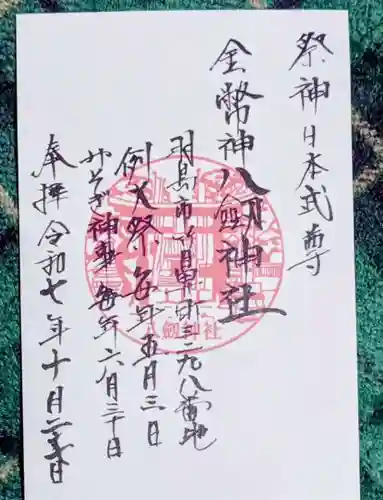 祭神日本武尊
金幣神八剱神社
羽島市 町三二九八番地
例大祭 毎年五月三日
みそぎ神事 毎年六月三十日
奉拝 令和七年十月二 日
八剱神社